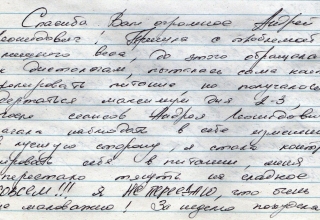 Спасибо Вам огромное Андрей
Леонидович! Пришла с проблемой
лишнего веса, до этого обращалась
к диетологам, пыталась сама конт
ролировать питание, но получалось
держаться максимум дня 2-3,
После сеансов Андрея Леонидовича
начала наблюдать в себе изменения
в лучшую сторону, я стала контр
лировать себя в питании, меня
перестало тянуть на сладкое
совсем!!! Я НЕ ПРЕДСТАВЛЯЮ, что
маловажно! За неделю похудела